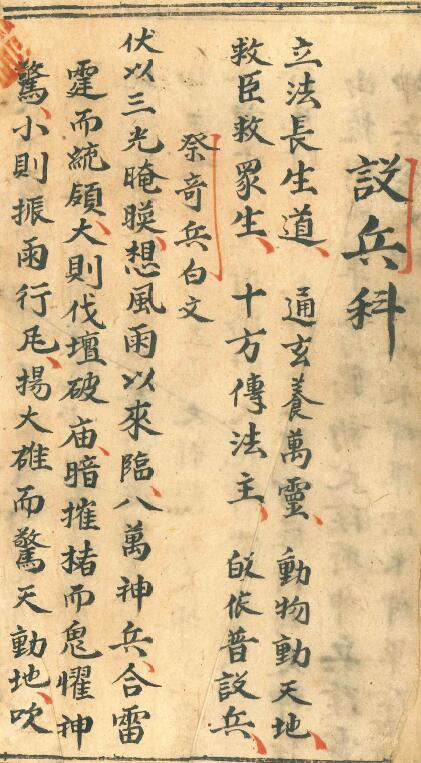 設兵科
立法長生道、通玄養萬靈、動物動天地、
救臣救眾生、十方傳法主、皈依普設兵、
祭奇兵白文
伏以三光晻暎、想風雨以來臨、八萬神兵、合雷
霆而統領、大則伐壇破庙、暗摧㨋而鬼懼神
驚、小則振雨行凮、揚大雄而驚天動地、吹